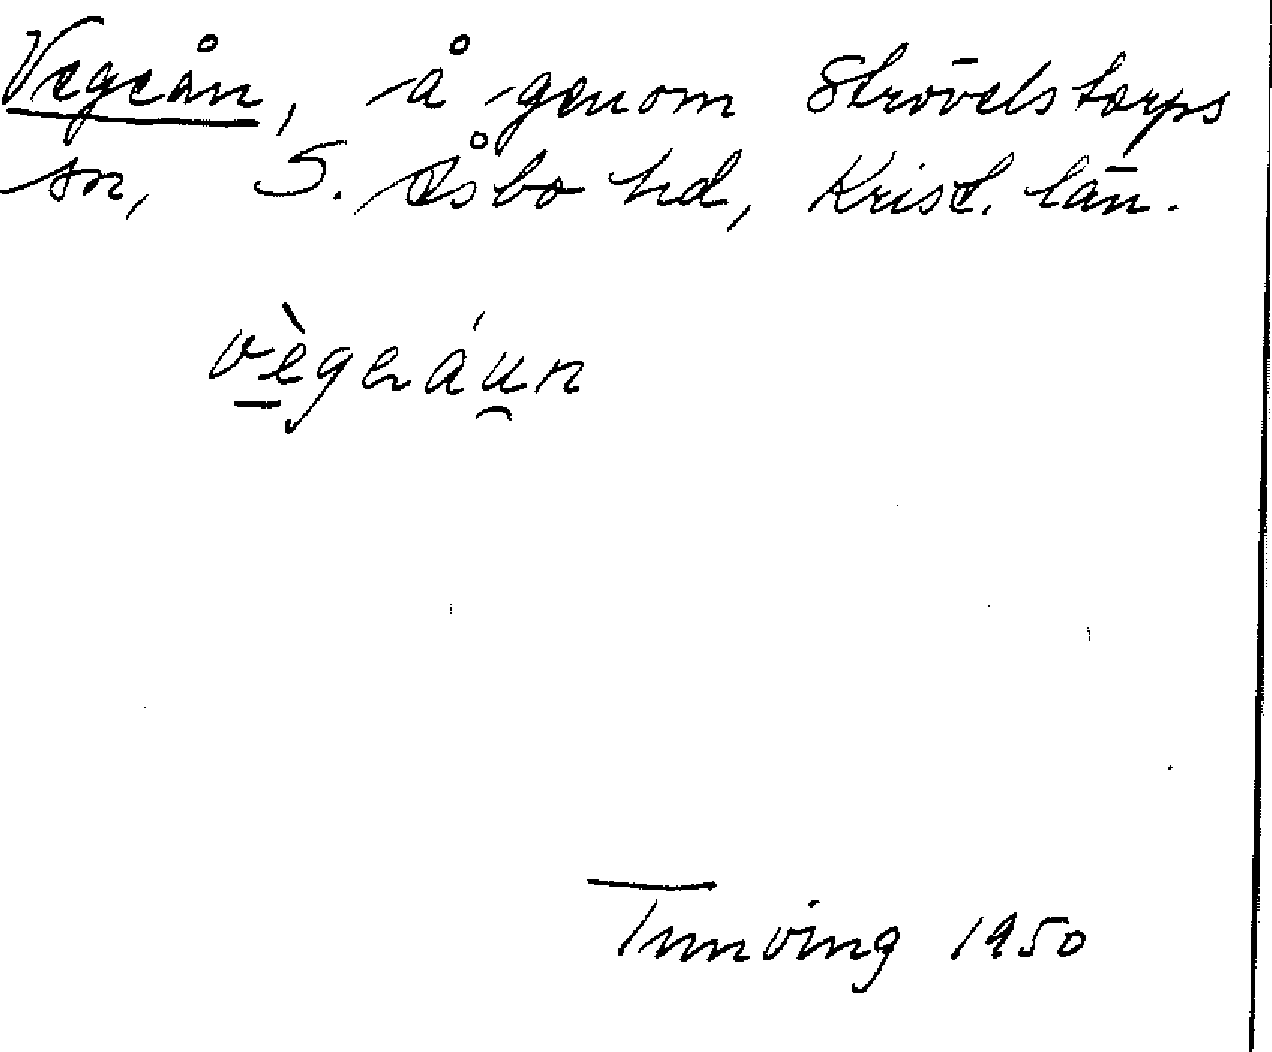 Vegeån, å genom Strövelstorps
sn, S. Åsbo hd, Krist. län.
vègeráun
Tunving 1950